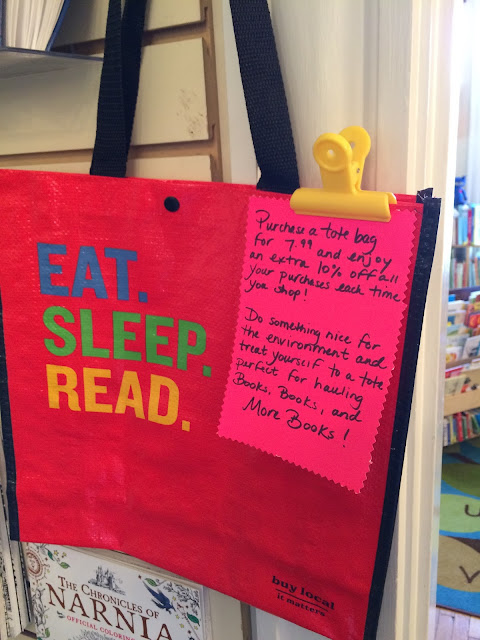 EAT.
SLEEP.
READ.
Purchase a tote bag
for 7.99 and enjoy
an extra 10% off all
your purchases each time
you shop!
Do something nice for
the environment and
treat yourself to a tote
perfect for hauling
Books, Books, and
More Books!
buy local
it matters
THE CHRONICLES OF
NARNIA
OFFICIAL COLORING